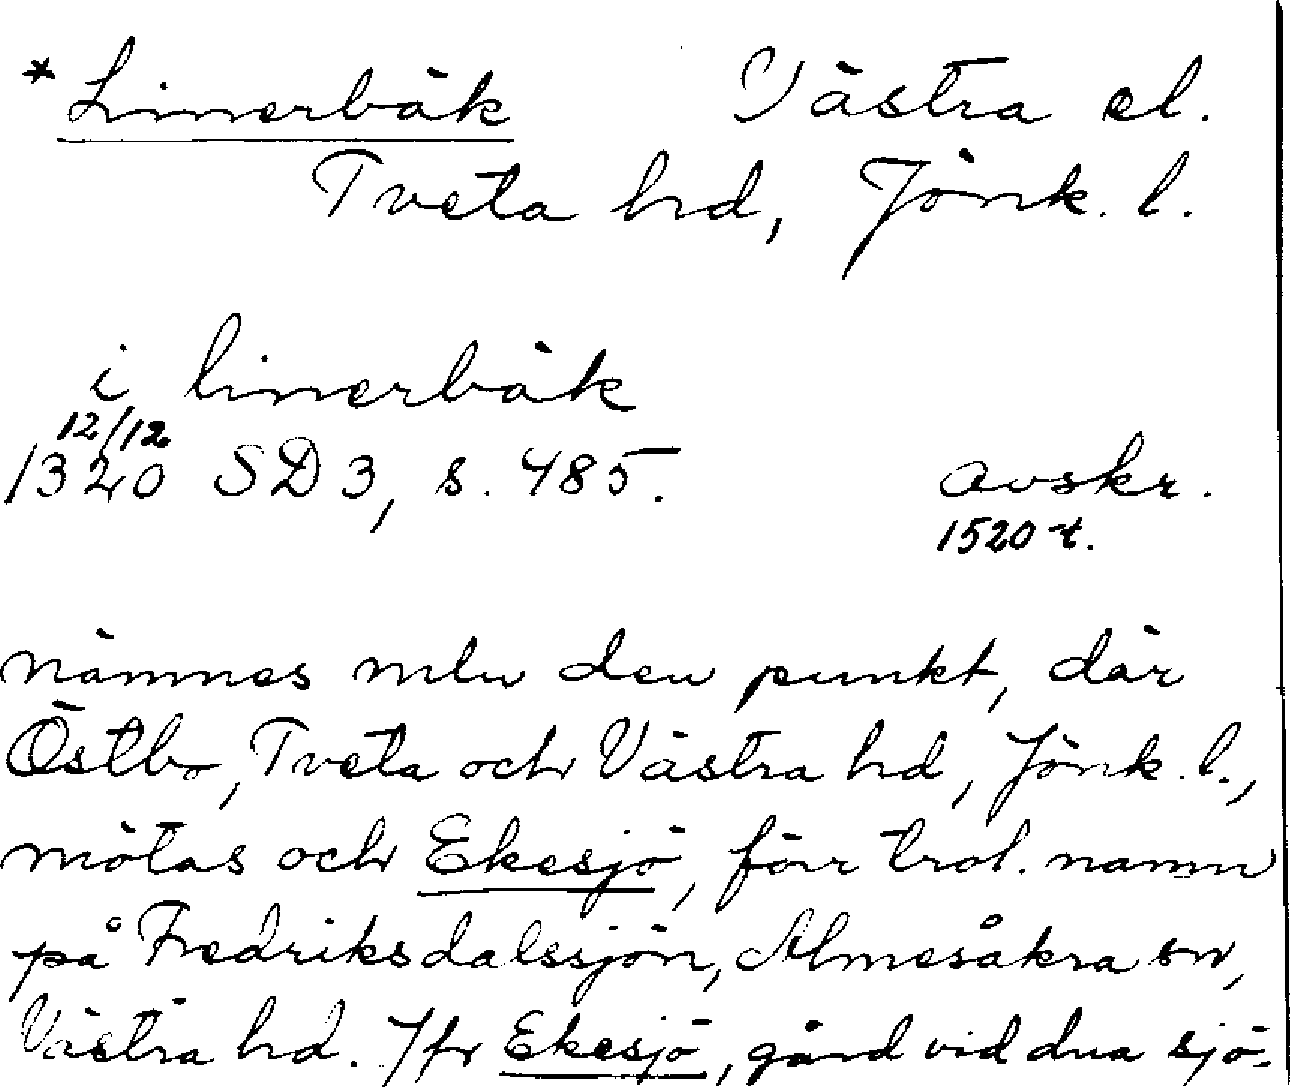 * Limerbäk Västra el.
Tveta hd, Jönk. l.
i limerbäk
12/12
1320 SD 3, s. 485. avskr.
1520 t.
nämnes mln den punkt, där
Östbo, Tveta och Västra hd, Jönk. l.,
mötas och Ekesjö, förr trol. namn
på Fredriksdalssjön, Almesåkra sn,
Västra hd. Jfr Ekesjö, gård vid dna sjö.